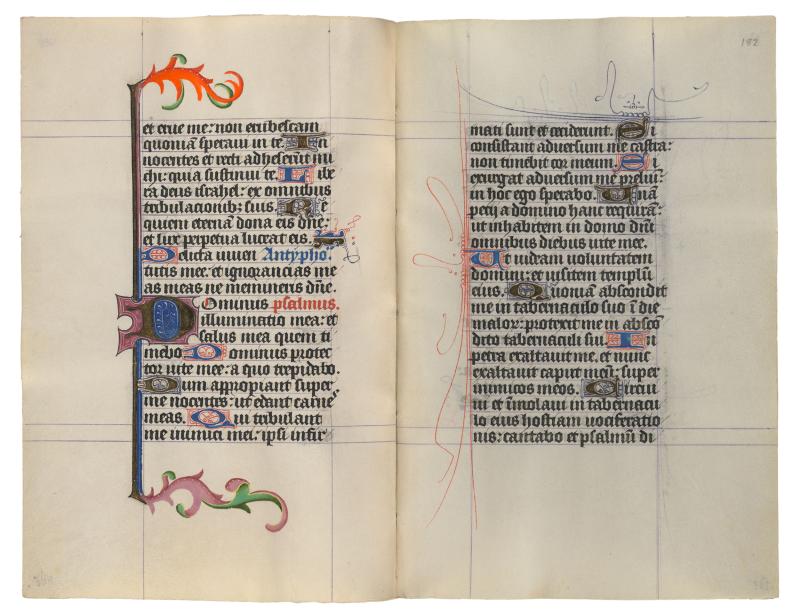 et erue me: non erubescam
quoniā speraui in te. In
nocentes et recti adheserūt mi
chi: quia sustinui te. Libe
ra deus israhel: ex omnibus
tribulacionibꝫ suis. Re
quiem eternā dona eis dn̄e:
et lux perpetua luceat eis.
Delicta iuuen Antypho.
tutis mee. et ignorancias me
as meas ne memineris dn̄e.
Dominus psalmus.
illuminatio mea: et
salus mea quem ti
mebo Dominus protec
tor uite mee: a quo trepidabo.
Dum appropiant super
me nocentes: ut edant carnes
meas. Qui tribulant
me inimici mei: ipsi infir
182
mati sunt et ceciderunt. Si
consistant aduersum me castra:
non timebit cor meum. Si
exurgat aduersum me preliū:
in hoc ego sperabo. Vnā
pecij a domino hanc requirā:
ut inhabitem in domo dn̄i
omnibus diebus uite mee.
Ut uideam uoluntatem
domini: et uisitem templū
eius. Quoniā abscondit
me in tabernaculo suo ī die
malor: protexit me in absco
dito tabernaculi sui. In
petra exaltauit me. et nunc
exaltauit caput meū: super
inimicos meos. Circui
ui et īmolaui in tabernacu
lo eius hostiam uociferatio
nis: cantabo et psalmū di